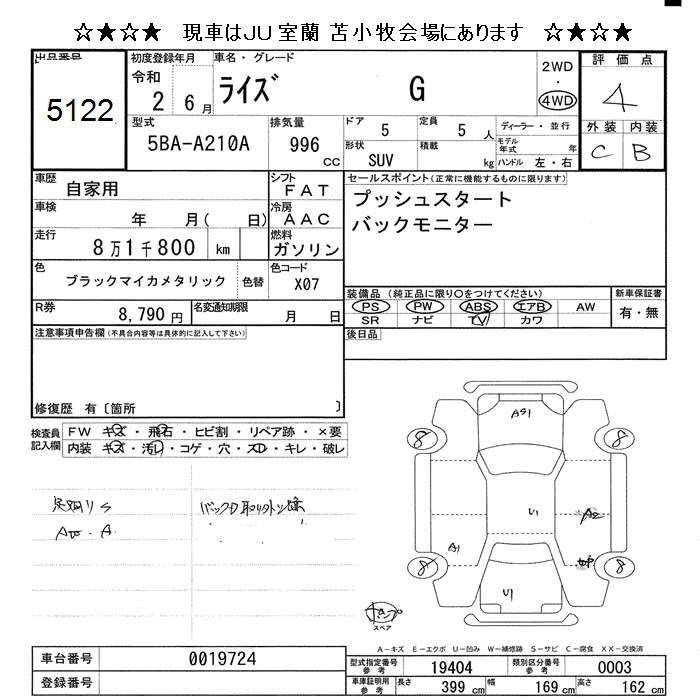 ☆★☆★ 現車はJU室蘭 苫小牧会場にあります ☆★☆★
出品番号
5122
初度登録年月
令和
2 6月
車名・グレード
ライズ G
2WD
・
4WD
評価点
4
外装 内装
C B
型式
5BA-A210A
排気量
996
cc
ドア
5
定員
5 人
形状
SUV
積載
kg
ディーラー・並行
モデル年式 年
ハンドル 左・右
車歴
自家用
シフト
FAT
車検
年 月( 日)
冷房
AAC
走行
8万1千800 km
燃料
ガソリン
色
ブラックマイカメタリック
色替
色コード
X07
R券
8,790円
名変通知期限
月 日
セールスポイント(正常に機能するものに限ります)
プッシュスタート
バックモニター
装備品 (純正品に限り○をつけてください)
PS PW ABS エアB AW
SR ナビ TV カワ
新車保証書
有・無
後日品
注意事項申告欄(不具合内容等は具体的に記入して下さい)
修復歴 有〔箇所 〕
検査員
記入欄
FW キズ・飛石・ヒビ割・リペア跡・×要
内装 キズ・汚レ・コゲ・穴・スレ・キレ・破レ
足廻りS
バックD
AS1
8 8
U1
A2
A1
8 8
U1
スペア
A-キズ E-エクボ U-凹み W-補修跡 S-サビ C-腐食 XX-交換済
車台番号
0019724
登録番号
型式指定番号
参考
19404
類別区分番号
参考
0003
車庫証明用
参考
長さ
399 cm
幅
169 cm
高さ
162 cm